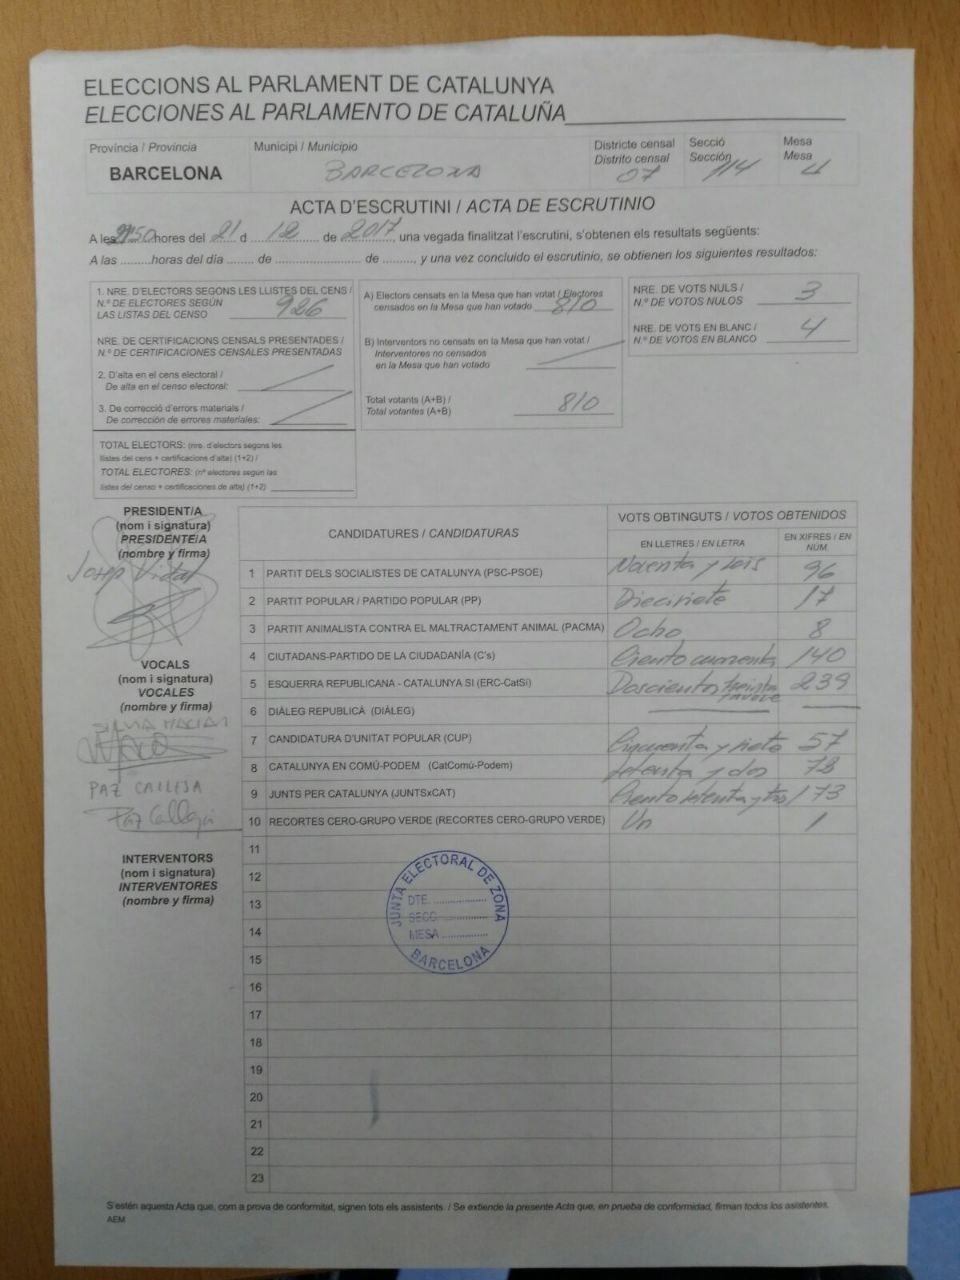 ELECCIONS AL PARLAMENT DE CATALUNYA
ELECCIONES AL PARLAMENTO DE CATALUÑA
Província / Provincia
BARCELONA
Municipi / Municipio
BARCELONA
Districte censal
Distrito censal
07
Secció
Sección
114
Mesa
Mesa
U
ACTA D'ESCRUTINI / ACTA DE ESCRUTINIO
A les hores del 21 d 12 de 2017, una vegada finalitzat l'escrutini, s'obtenen els resultats següents:
A las .........horas del día ........ de ........................ de ........, y una vez concluido el escrutinio, se obtienen los siguientes resultados:
1. NRE. D'ELECTORS SEGONS LES LLISTES DEL CENS /
N.º DE ELECTORES SEGÚN
LAS LISTAS DEL CENSO 926
NRE. DE CERTIFICACIONS CENSALS PRESENTADES /
N.º DE CERTIFICACIONES CENSALES PRESENTADAS
2. D'alta en el cens electoral /
De alta en el censo electoral:
3. De correcció d'errors materials /
De corrección de errores materiales:
TOTAL ELECTORS: (nre. d'electors segons les
llistes del cens + certificacions d'alta) (1+2) /
TOTAL ELECTORES: (nº electores según las
listes del censo + certificaciones de alta) (1+2)
A) Electors censats en la Mesa que han votat / Electores
censados en la Mesa que han votado 810
B) Interventors no censats en la Mesa que han votat /
Interventores no censados
en la Mesa que han votado
Total votants (A+B) /
Total votantes (A+B) 810
NRE. DE VOTS NULS /
N.º DE VOTOS NULOS 3
NRE. DE VOTS EN BLANC /
N.º DE VOTOS EN BLANCO 4
PRESIDENT/A
(nom i signatura)
PRESIDENTE/A
(nombre y firma)
Josep Vidal
VOCALS
(nom i signatura)
VOCALES
(nombre y firma)
SILVIA MACIAN
PAZ CALLEJA
Paz Calleja
INTERVENTORS
(nom i signatura)
INTERVENTORES
(nombre y firma)
CANDIDATURES / CANDIDATURAS
VOTS OBTINGUTS / VOTOS OBTENIDOS
EN LLETRES / EN LETRA
EN XIFRES / EN
NÚM.
1 PARTIT DELS SOCIALISTES DE CATALUNYA (PSC-PSOE) Noventa y seis 96
2 PARTIT POPULAR / PARTIDO POPULAR (PP) Diecisiete 17
3 PARTIT ANIMALISTA CONTRA EL MALTRACTAMENT ANIMAL (PACMA) Ocho 8
4 CIUTADANS-PARTIDO DE LA CIUDADANÍA (C's) Ciento cuarenta 140
5 ESQUERRA REPUBLICANA - CATALUNYA SI (ERC-CatSí) Doscientos treinta 239
6 DIÀLEG REPUBLICÀ (DIÀLEG)
7 CANDIDATURA D'UNITAT POPULAR (CUP) Cincuenta y siete 57
8 CATALUNYA EN COMÚ-PODEM (CatComú-Podem) Setenta y dos
9 JUNTS PER CATALUNYA (JUNTSxCAT) Ciento setenta y tres 173
10 RECORTES CERO-GRUPO VERDE (RECORTES CERO-GRUPO VERDE) Un 1
11
12
13
14
15
16
17
18
19
20
21
22
23
JUNTA ELECTORAL DE ZONA
DTE. ................
SECC. ..............
MESA ..............
BARCELONA
S'estén aquesta Acta que, com a prova de conformitat, signen tots els assistents. / Se extiende la presente Acta que, en prueba de conformidad, firman todos los asistentes.
AEM